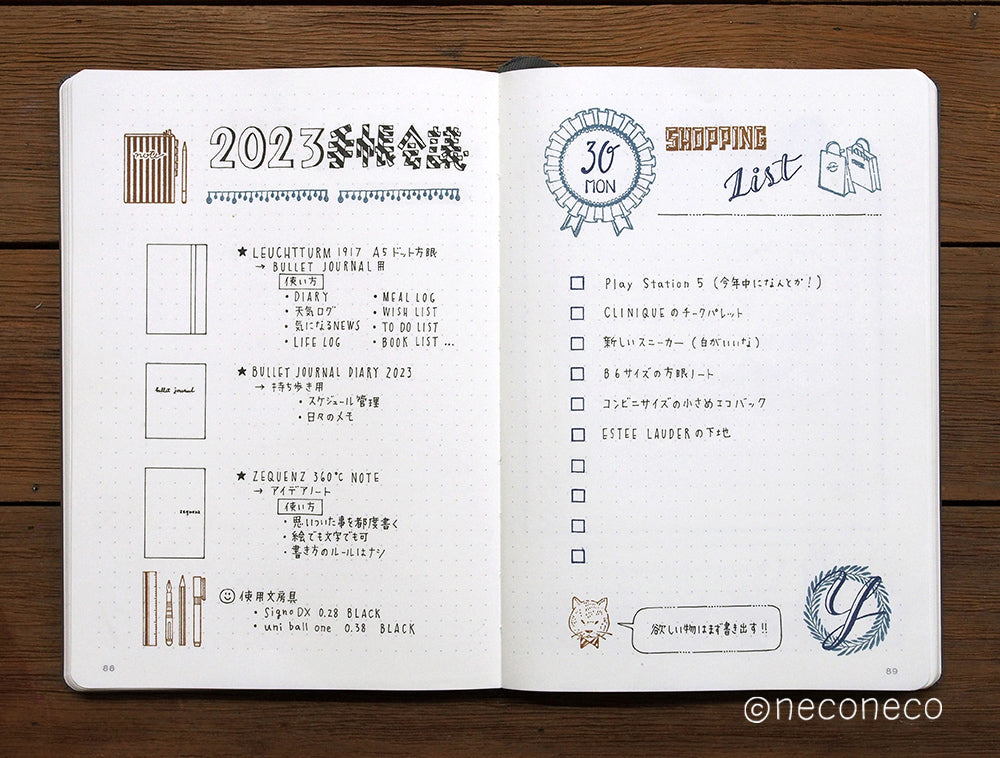 note
2023手帳会議
★ LEUCHTTURM 1917 A5ドット方眼
→ BULLET JOURNAL用
使い方
・DIARY
・天気ログ
・気になるNEWS
・LIFE LOG
・MEAL LOG
・WISH LIST
・TO DO LIST
・BOOK LIST ...
bullet journal
★ BULLET JOURNAL DIARY 2023
→ 持ち歩き用
・スケジュール管理
・日々のメモ
zequenz
★ ZEQUENZ 360℃ NOTE
→ アイデアノート
使い方
・思いついた事を都度書く
・絵でも文字でも可
・書き方のルールはナシ
使用文房具
・Signo DX 0.28 BLACK
・uni ball one 0.38 BLACK
88
30
MON
SHOPPING
List
Play Station 5 (今年中になんとか!)
CLINIQUEのチークパレット
新しいスニーカー (白がいいな)
B6サイズの方眼ノート
コンビニサイズの小さめエコバック
ESTEE LAUDERの下地
欲しい物はまず書き出す!!
Y
89
©neconeco